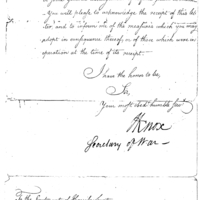 You will please to acknowledge the receipt of this let
ter, and to inform me of the measures which you may
adopt in consequence thereof, or of those which were in
operation at the time of its receipt.
I have the honor to be,
Sir,
Your most obed. humble Servt
H Knox
Secretary of War
To the